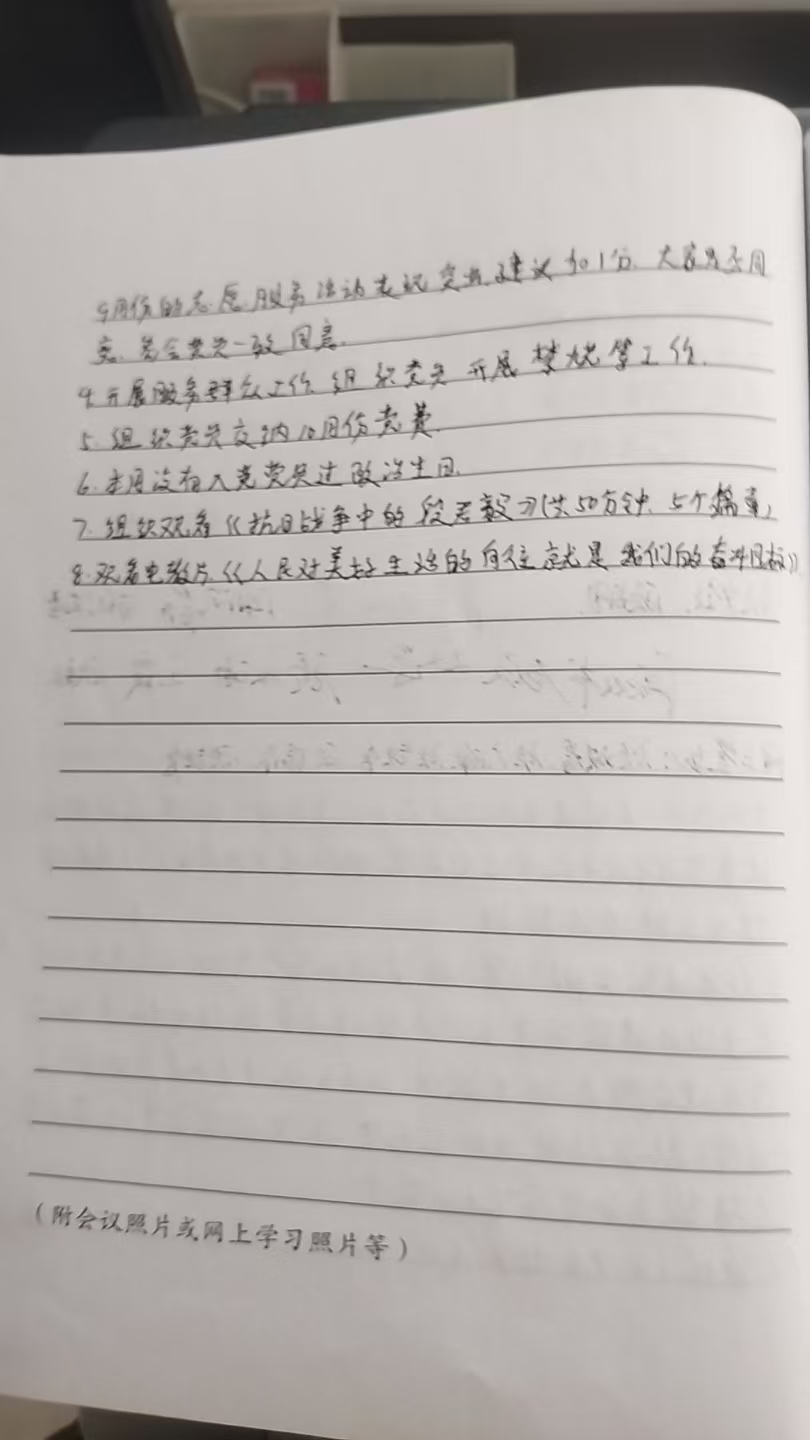 9月份的志愿服务活动表现突出建议加1分. 大家是否同
意. 与会党员一致同意.
4. 开展服务群众工作. 组织党员开展禁烧等工作.
5. 组织党员交纳10月份党费.
6. 本月没有入党党员过政治生日.
7. 组织观看《抗日战争中的
8. 观看电教片《人民对美好生活的向往就是我们的奋斗目标》
(附会议照片或网上学习照片等)